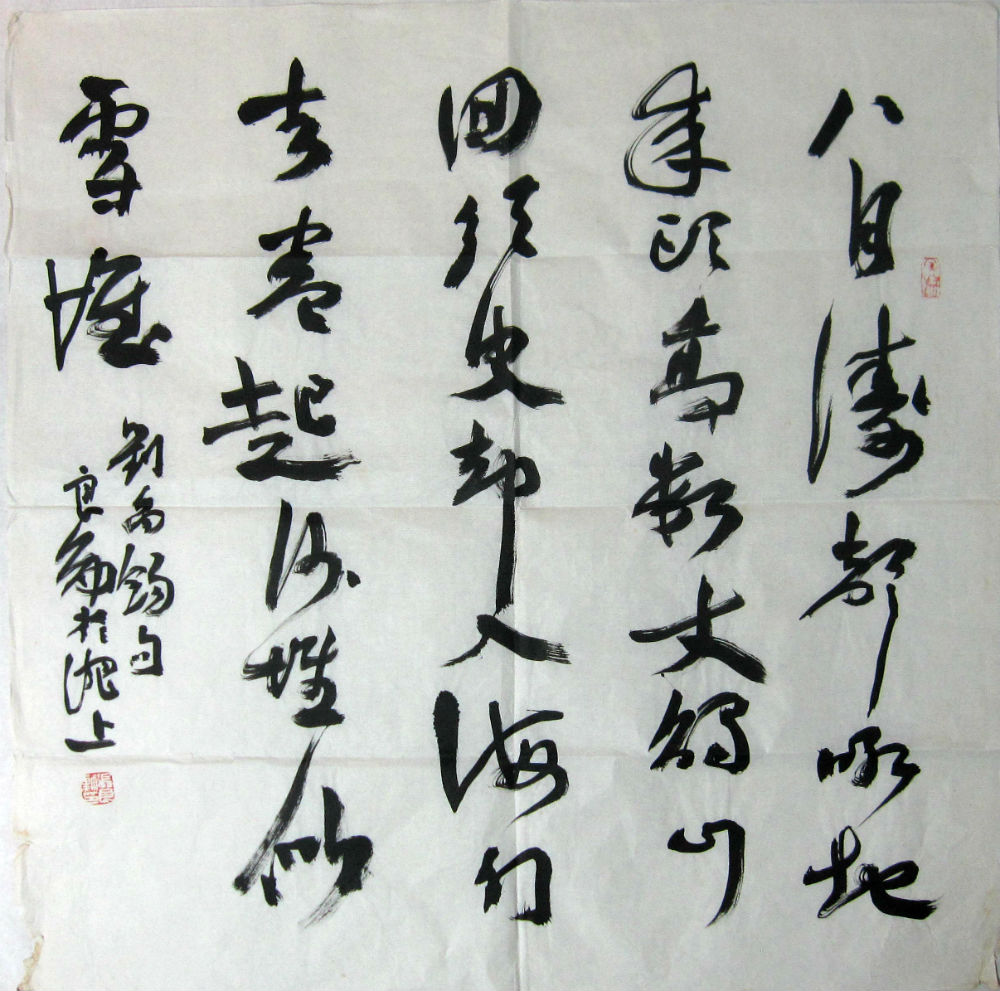 八月濤聲吼地
來頭高數丈觸山
回須臾却入海門
去卷起沙堆似
雪堆
劉禹錫句
良於淝上